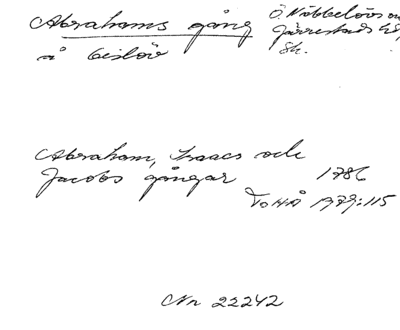 Abrahams gång Ö. Nöbbelövs sn
å Gislöv Järrestads hd,
Sk.
Abraham, Isaacs och
Jacobs gångar 1786
ToHÅ 1979:115
Nr 22242